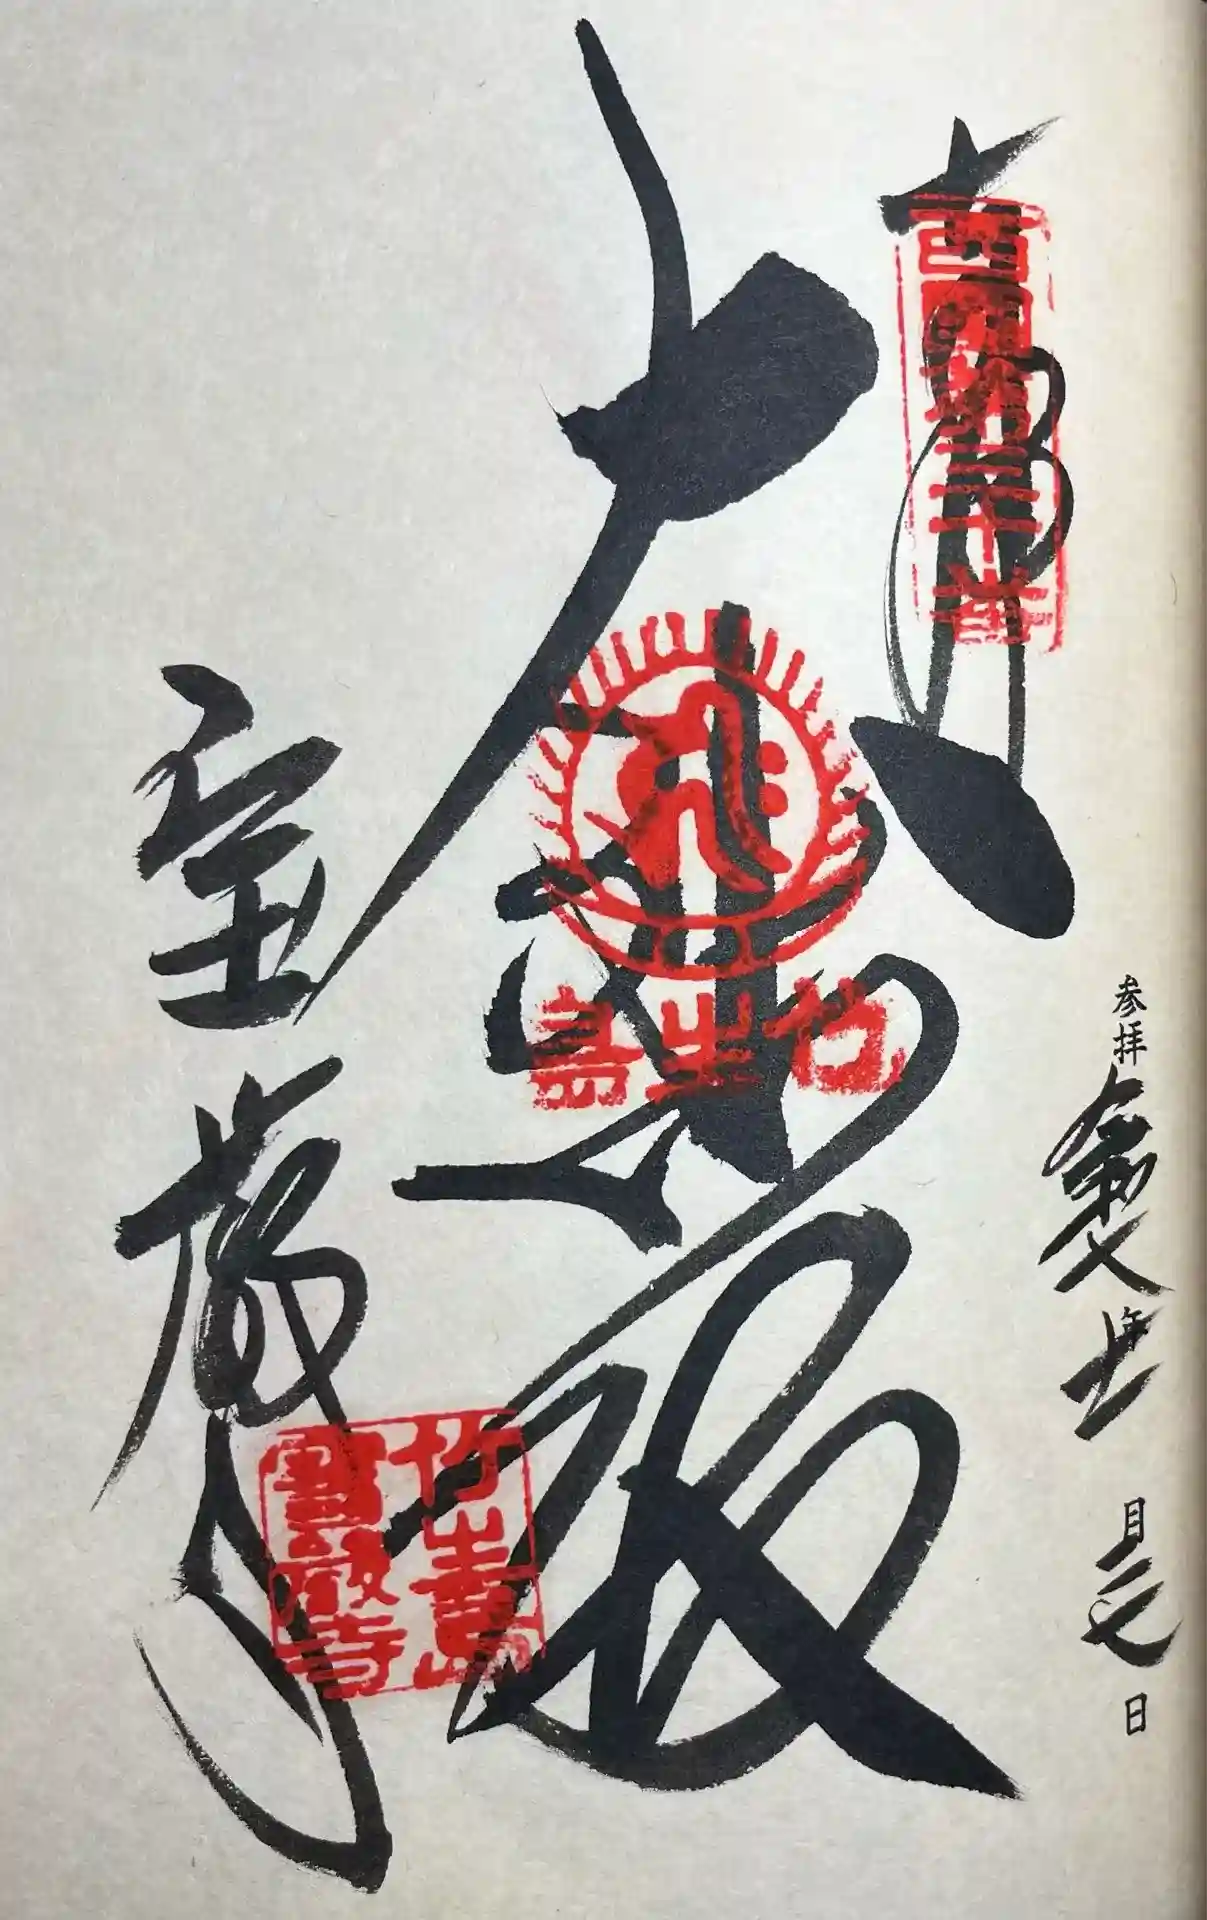 参拝 令和七年十一月二七日
奉拝
西國第三十番
大悲殿
竹生島
宝厳寺
竹生島
寶厳寺